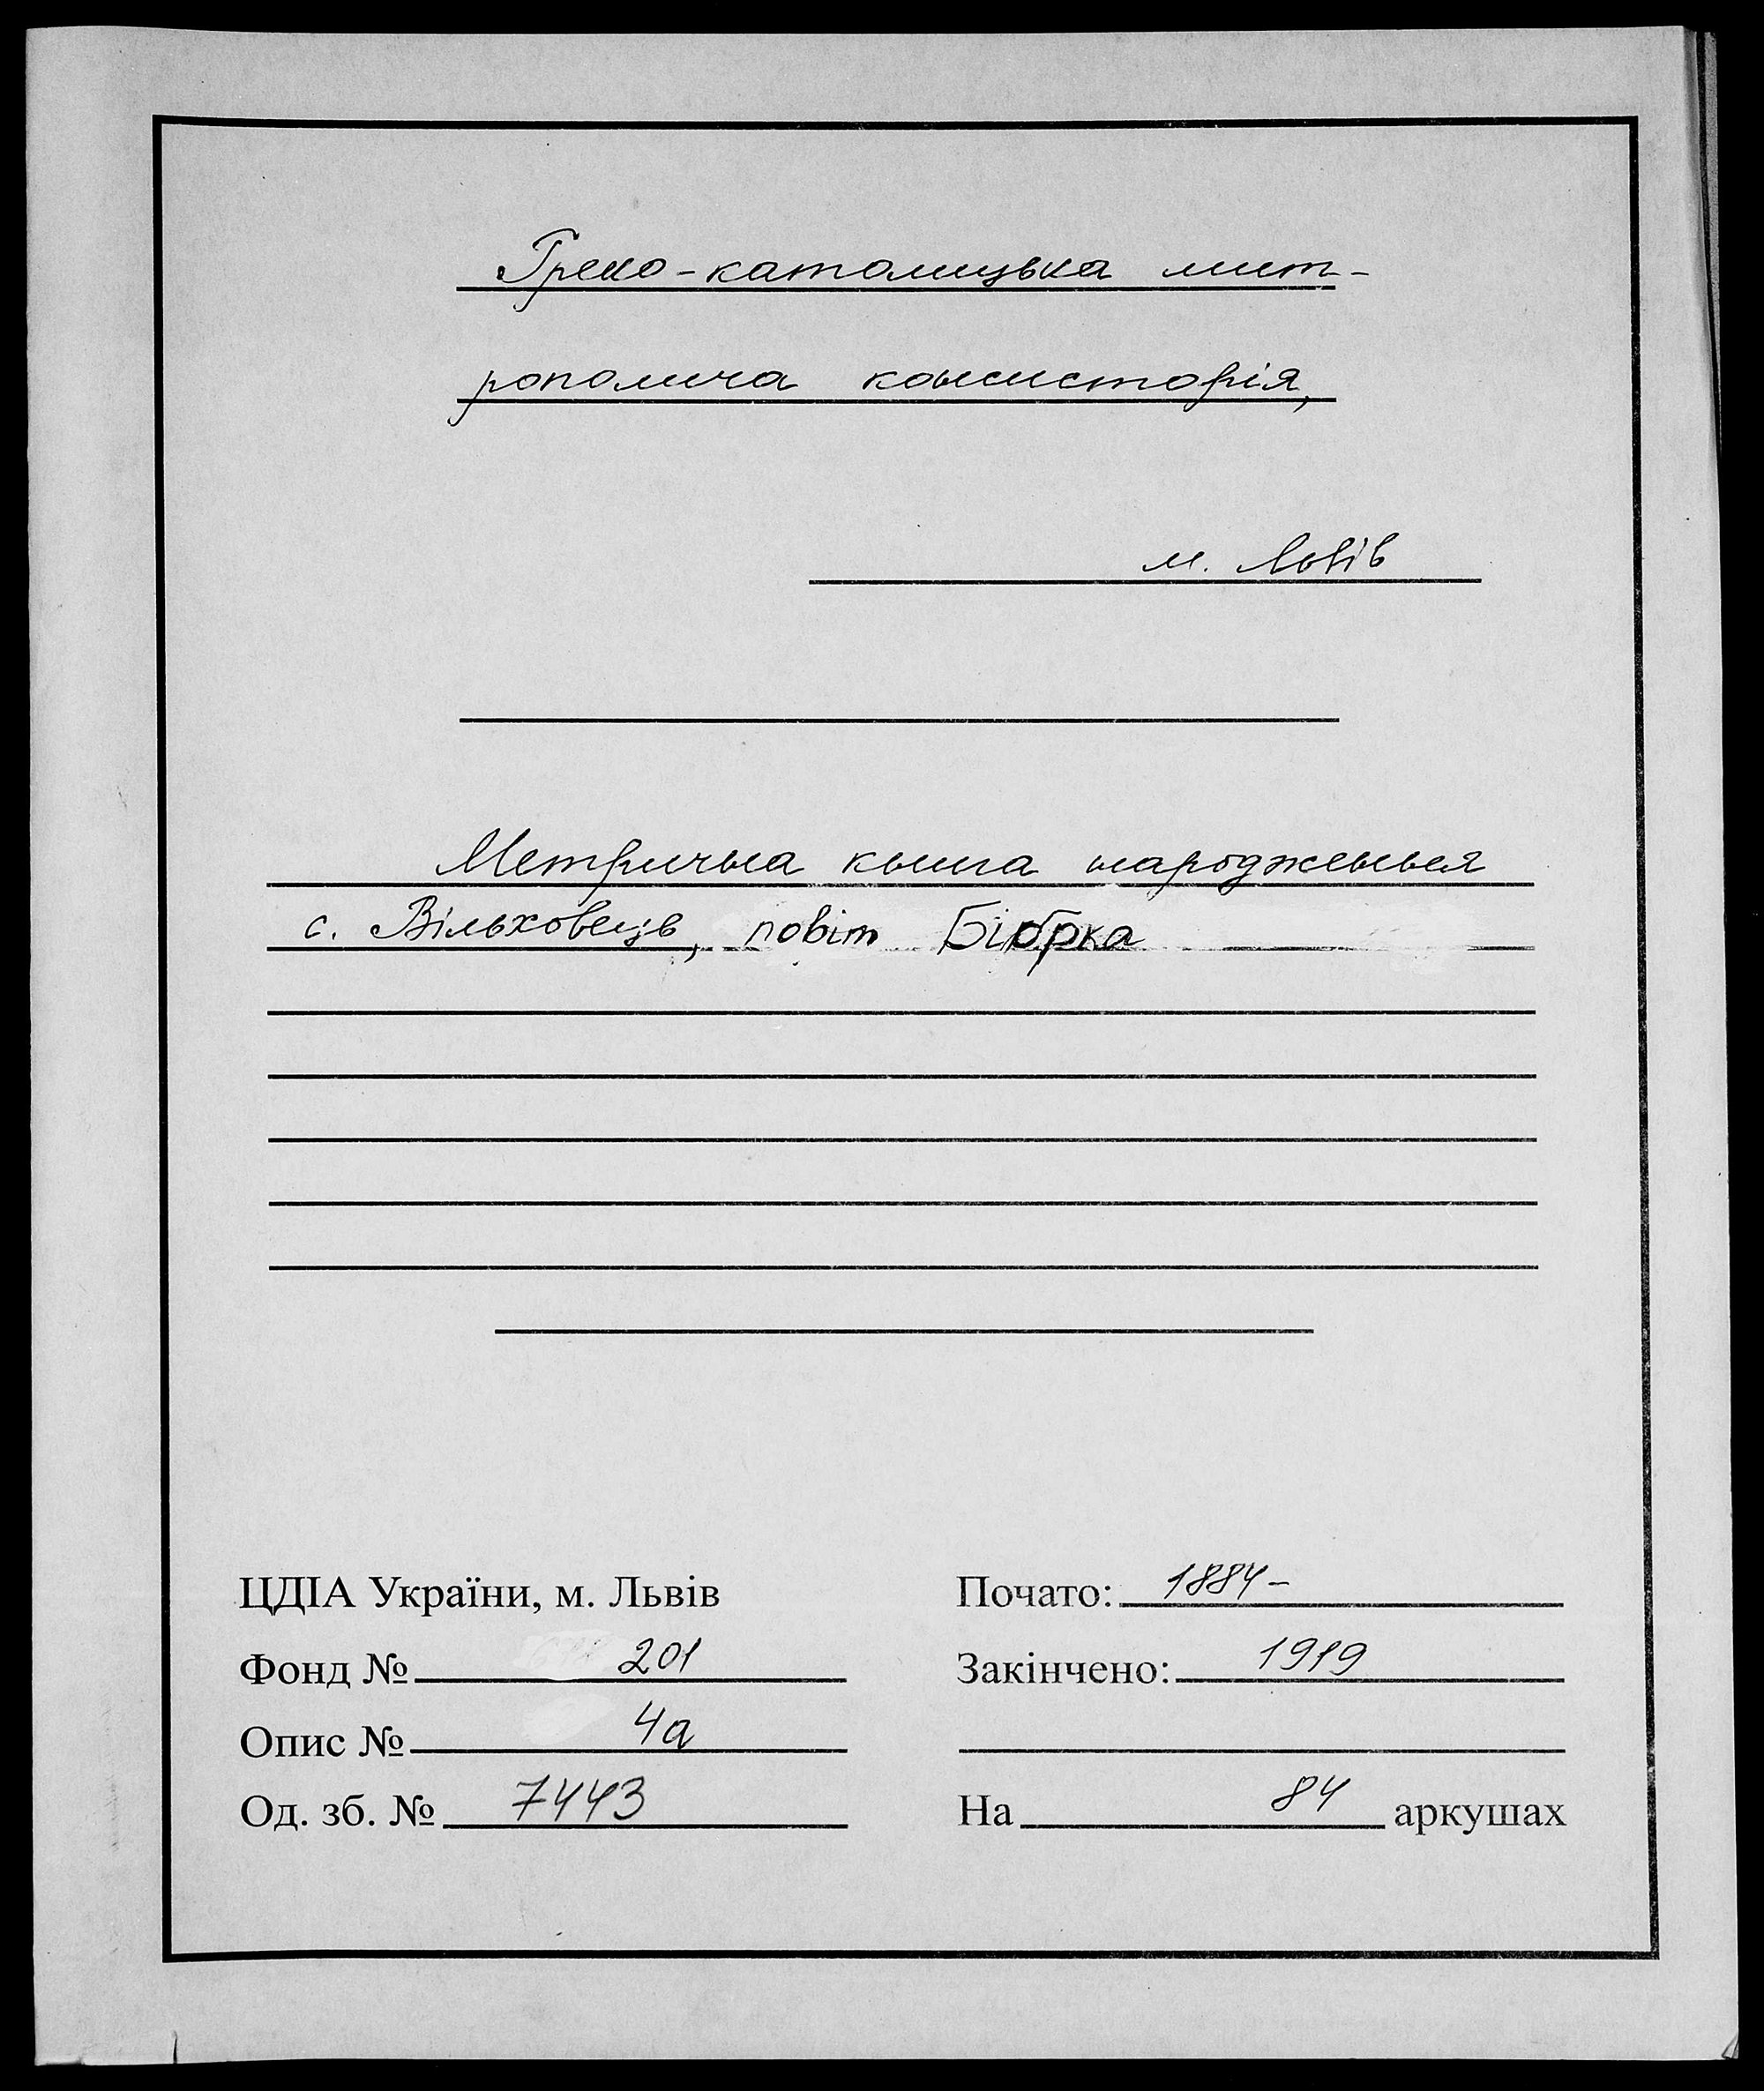 Греко-католицька мит-
рополича консисторія,
м. Львів
Метрична книга народження
с. Вільховець, повіт Бібрка
ЦДІА України, м. Львів
Фонд № 201
Опис № 4а
Од. зб. № 7443
Почато: 1884-
Закінчено: 1919
На 84 аркушах